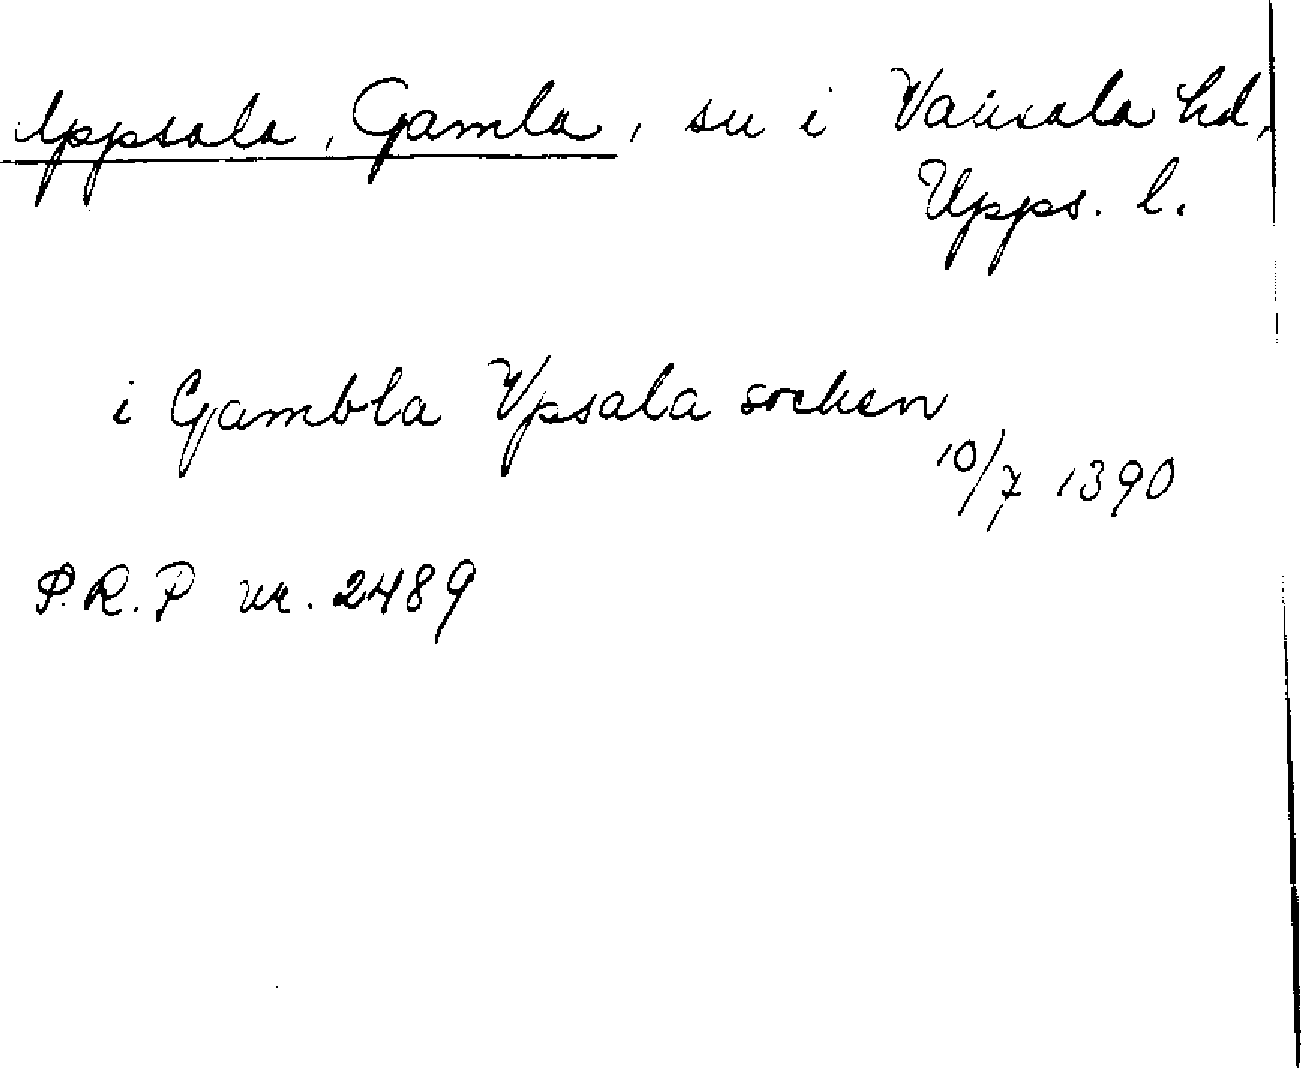 Uppsala, Gamla, sn i Vaksala hd,
Upps. l.
i Gambla Vpsala socken
10/7 1390
P.R.P nr. 2489